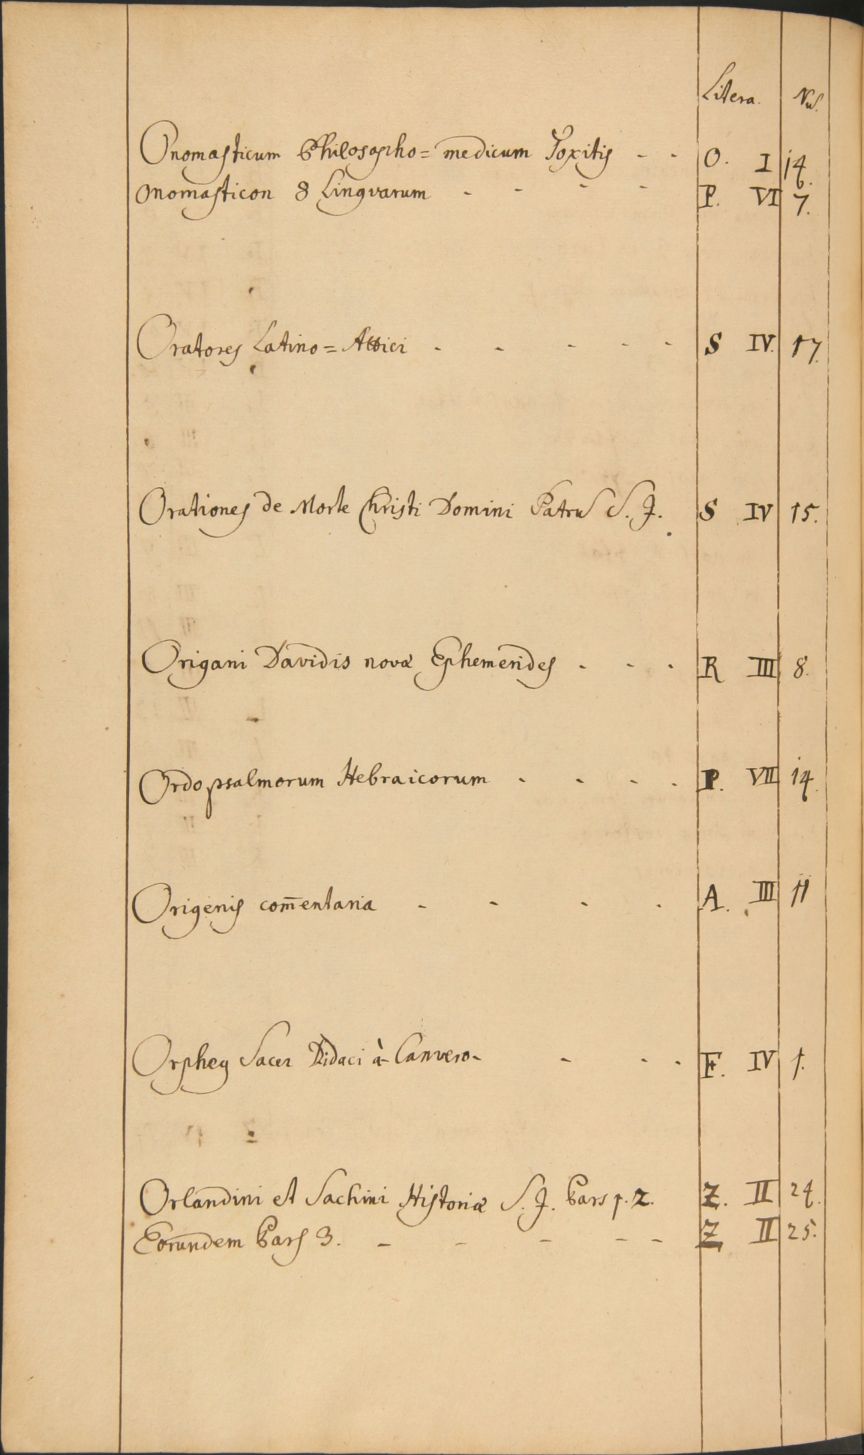 Litera. Nus.
Onomasticum Philosopho= medicum Toxitis - - O. I 14.
Onomasticon 8 Lingvarum - - - - P. VI 7.
Oratores Latino= Attici - - - - - S IV. 17.
Orationes de Morte Christi Domini Patrus S. J. S IV 15.
Origani Davidis novæ Ephemerides - - - R III 8.
Ordo psalmorum Hebraicorum - - - - P. VII 14.
Origenis com̄entaria - - - - A. III 11
Orpheus Sacer Didaci à Canvero- - - - F. IV 1.
Orlandini et Sachini Historiæ S. J. Pars 1. 2. Z. II 24.
Eorundem Pars 3. - - - - - Z II 25.